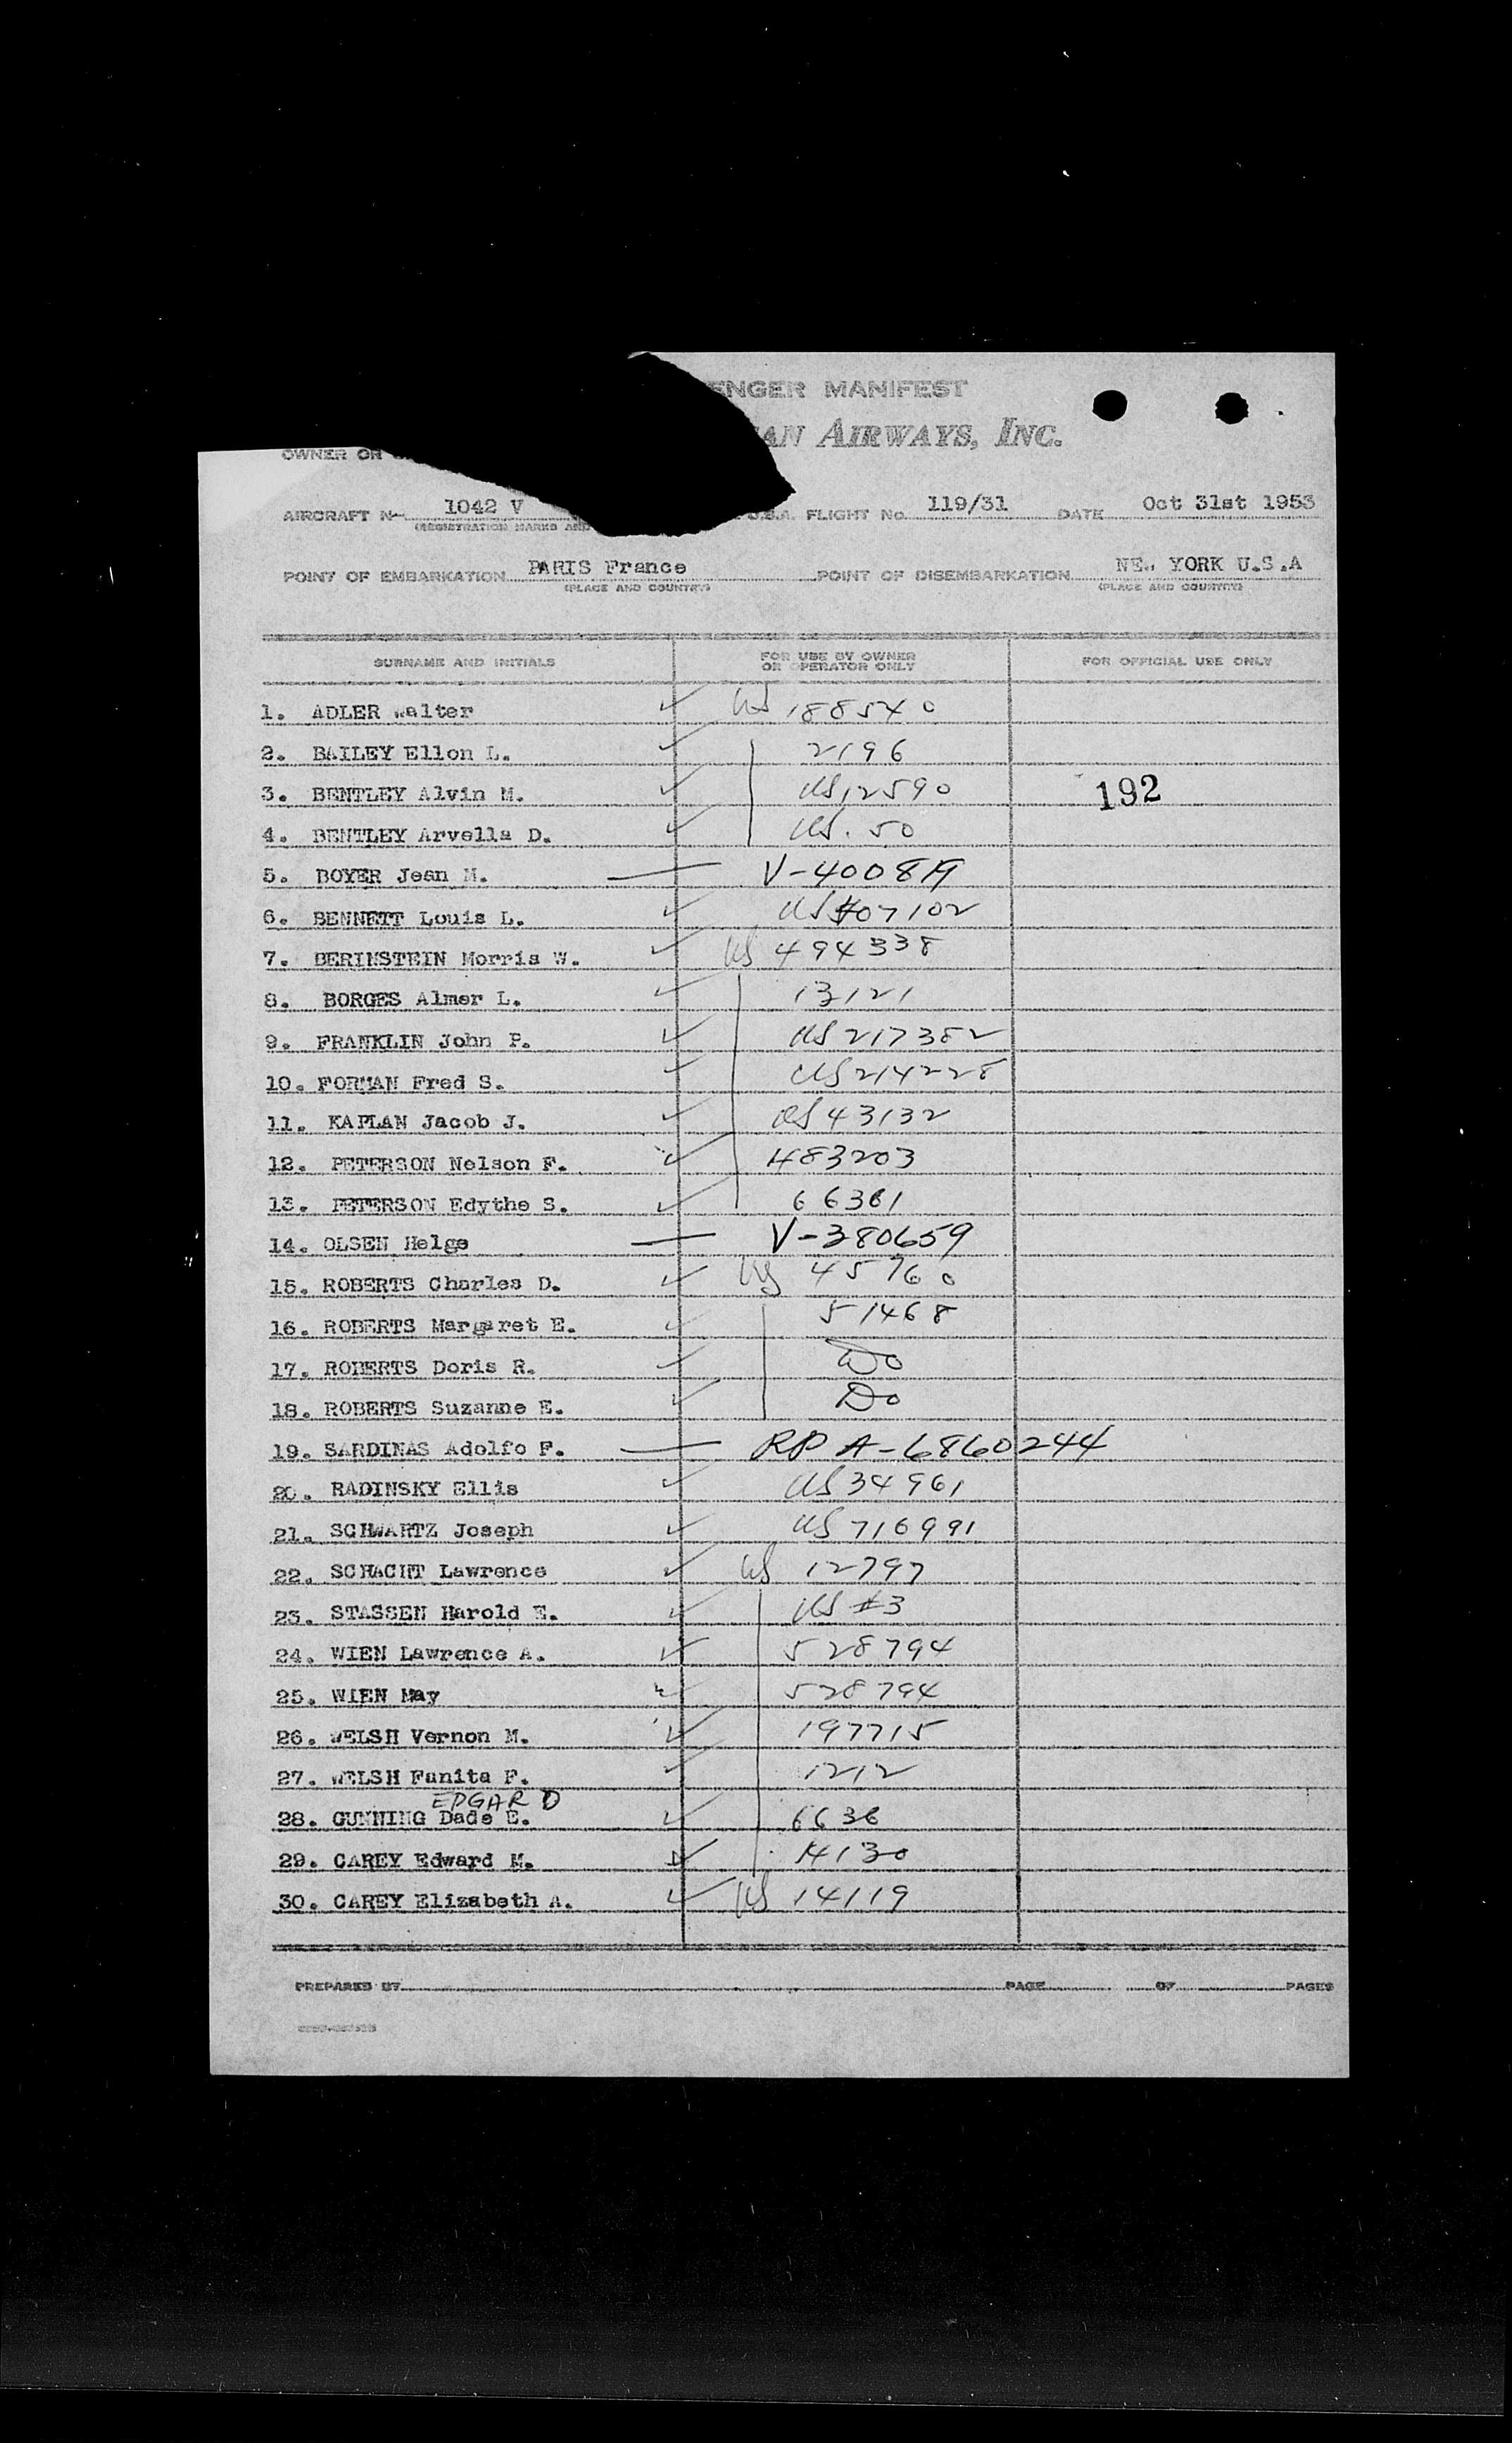 ENGER MANIFEST
AN AIRWAYS, INC.
OWNER OR
AIRCRAFT No 1042 V U.S.A. FLIGHT No. 119/31 DATE Oct 31st 1953
(REGISTRATION MARKS AND
POINT OF EMBARKATION PARIS France POINT OF DISEMBARKATION NEW YORK U.S.A
(PLACE AND COUNTRY) (PLACE AND COUNTRY)
SURNAME AND INITIALS FOR USE BY OWNER OR OPERATOR ONLY FOR OFFICIAL USE ONLY
1. ADLER Walter ✓ US 188540
2. BAILEY Ellon L. ✓ 2196
3. BENTLEY Alvin M. ✓ US 12590 192
4. BENTLEY Arvella D. ✓ US. 50
5. BOYER Jean M. — V-400819
6. BENNETT Louis L. ✓ US 407102
7. BERINSTEIN Morris W. ✓ US 494338
8. BORGES Almer L. ✓ 13121
9. FRANKLIN John P. ✓ US 217382
10. FORMAN Fred S. ✓ US 214228
11. KAPLAN Jacob J. ✓ US 43132
12. PETERSON Nelson F. ✓ 483203
13. PETERSON Edythe S. ✓ 66361
14. OLSEN Helge — V-380659
15. ROBERTS Charles D. ✓ US 45760
16. ROBERTS Margaret E. ✓ 51468
17. ROBERTS Doris R. ✓ Do
18. ROBERTS Suzanne E. ✓ Do
19. SARDINAS Adolfo F. — RP A-6860244
20. RADINSKY Ellis ✓ US 34961
21. SCHWARTZ Joseph ✓ US 716991
22. SCHACHT Lawrence ✓ US 12797
23. STASSEN Harold E. ✓ US #3
24. WIEN Lawrence A. ✓ 528794
25. WIEN May ✓ 528794
26. WELSH Vernon M. ✓ 197715
27. WELSH Fanita F. ✓ 1212
EDGAR D
28. GUNNING Dade E. ✓ 6636
29. CAREY Edward M. ✓ 14130
30. CAREY Elizabeth A. ✓ US 14119
PREPARED BY PAGE OF PAGES